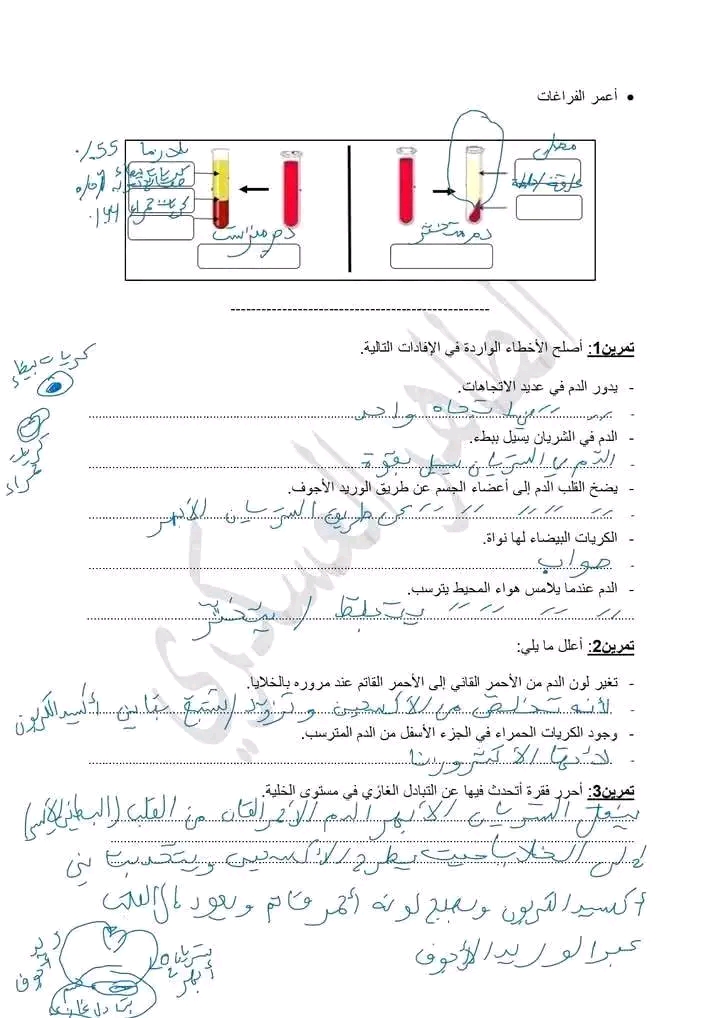 • أعمر الفراغات
بلازما 55٪
مصل
كريات بيضاء
كريات حمراء 44٪
دم مترسب
دم متخثر
تمرين1: أصلح الأخطاء الواردة في الإفادات التالية.
كريات بيضاء
- يدور الدم في عديد الاتجاهات.
- في اتجاه واحد
- الدم في الشريان يسيل ببطء.
كريات حمراء
- الدم في الشريان يسيل بقوة
- يضخ القلب الدم إلى أعضاء الجسم عن طريق الوريد الأجوف.
- عن طريق الشريان الأبهر
- الكريات البيضاء لها نواة.
- صواب
- الدم عندما يلامس هواء المحيط يترسب.
- يتجلط / يتخثر
تمرين2: أعلل ما يلي:
- تغير لون الدم من الأحمر القاني إلى الأحمر القاتم عند مروره بالخلايا.
- لأنه تخلص من الأكسجين وتزود / تشبع بثاني أكسيد الكربون
- وجود الكريات الحمراء في الجزء الأسفل من الدم المترسب.
- لأنها الأكثر وزنا
تمرين3: أحرر فقرة أتحدث فيها عن التبادل الغازي في مستوى الخلية.
ينقل الشريان الأبهر الدم الأحمر القان من القلب (البطين الأيسر)
إلى الخلايا حيث يطرح الأكسجين ويتحد ب ثني
أكسيد الكربون ويصبح لونه أحمر قاتم ويعود إلى القلب
عبر الوريد الأجوف
وريد أجوف
شريان أبهر
جسم
تبادل غازي
الطاهر العسكري